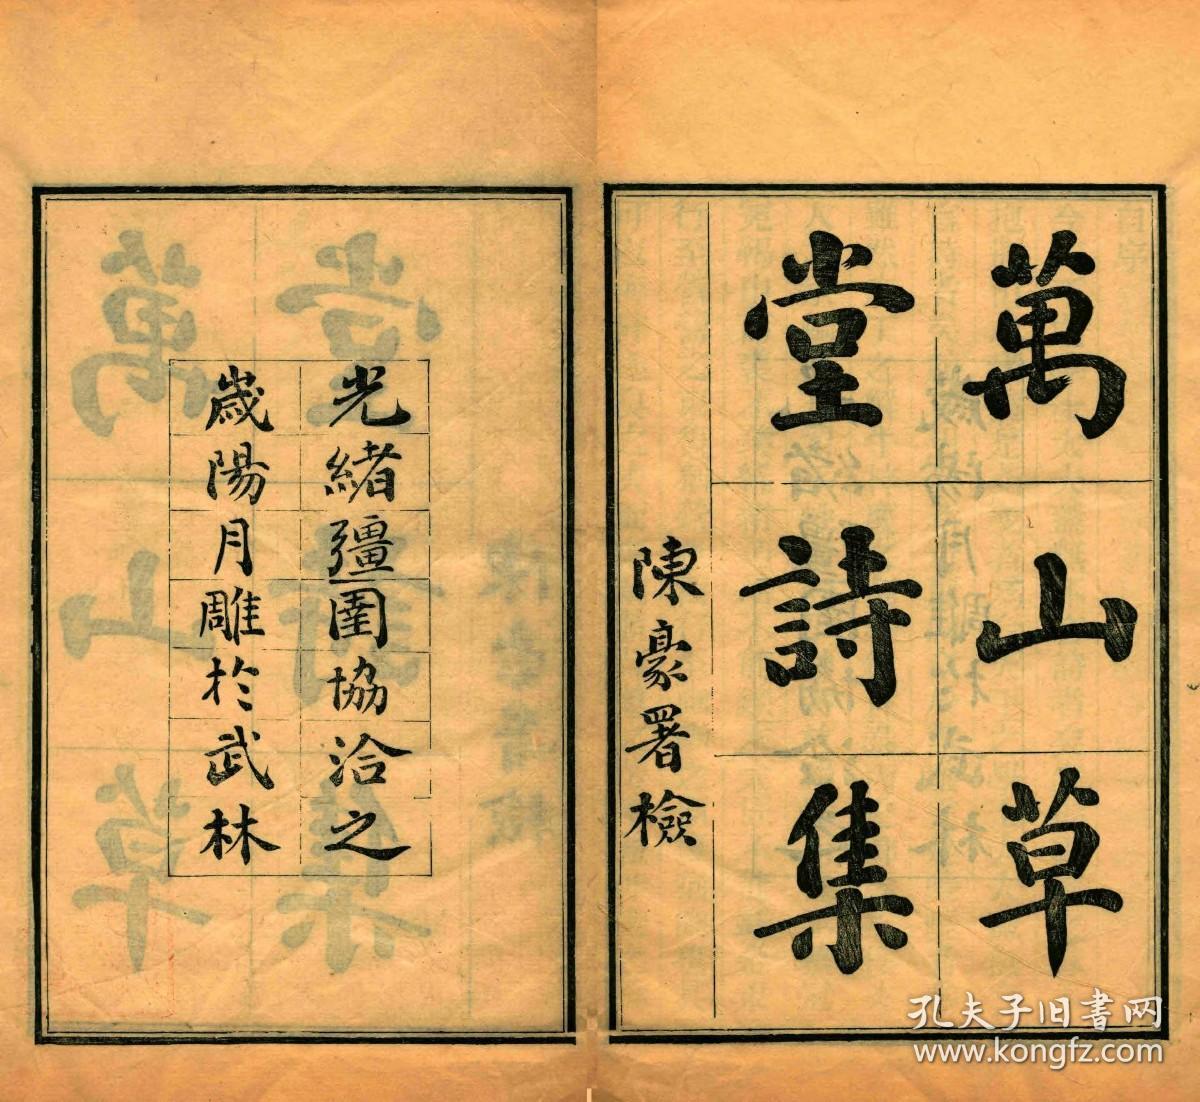 萬山草
堂詩集
陳豪署檢
光緒彊圉協洽之
歲陽月雕於武林
孔夫子旧书网
www.kongfz.com